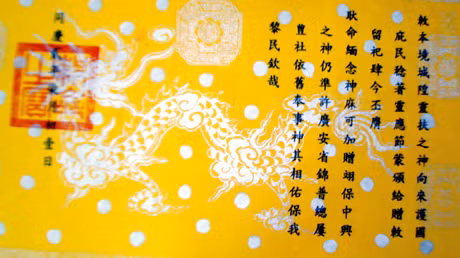 敕本境城隍靈扶之神向來護國
庇民稔著靈應節蒙頒給贈敕
留祀肆今丕膺
耿命緬念神庥可加贈翊保中興
之神仍準許廣安省錦普總屢
豊社依舊奉事神其相佑保我
黎民欽哉
同慶 壹日